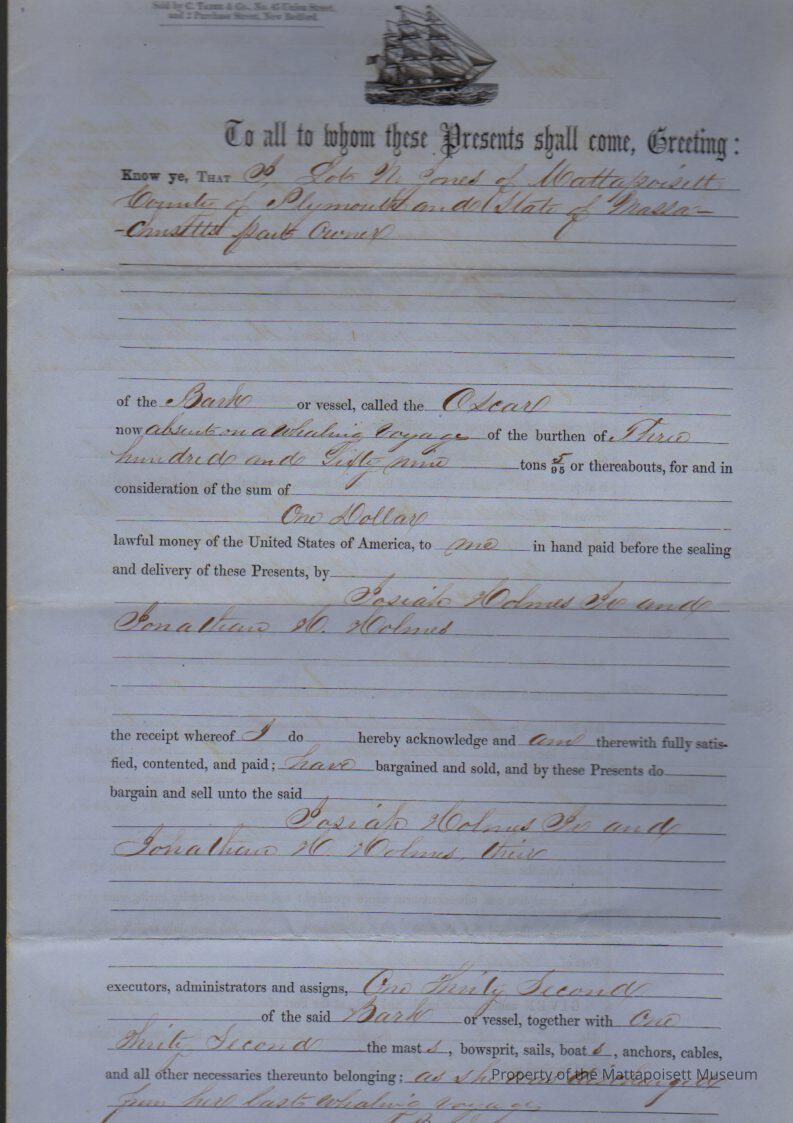 Sold by C. Taber & Co., No. 45 Union Street,
and 2 Purchase Street, New Bedford.
To all to whom these Presents shall come, Greeting:
Know ye, THAT I, Lot N. Jones of Mattapoisett
County of Plymouth and State of Massa-
-chusetts part Owner
of the Bark or vessel, called the Oscar
now absent on a Whaling Voyage of the burthen of Three
hundred and Sixty nine tons 5/95 or thereabouts, for and in
consideration of the sum of
One Dollar
lawful money of the United States of America, to me in hand paid before the sealing
and delivery of these Presents, by
Josiah Holmes Jr and
Jonathan H. Holmes
the receipt whereof I do hereby acknowledge and am therewith fully satis-
fied, contented, and paid; have bargained and sold, and by these Presents do
bargain and sell unto the said
Josiah Holmes Jr and
Jonathan H. Holmes, their
executors, administrators and assigns, One Thirty Second
of the said Bark or vessel, together with One
Thirty Second the mast s, bowsprit, sails, boat s, anchors, cables,
and all other necessaries thereunto belonging; as she
from her last whaling voyage
Property of the Mattapoisett Museum